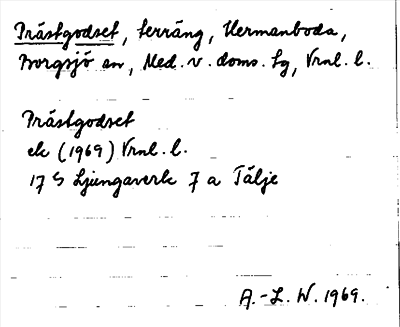 Prästgodset, terräng, Hermanboda,
Borgsjö sn, Med. v. doms. tg, Vrnl. l.
Prästgodset
ek (1969) Vrnl. l.
17 G Ljungaverk 7 a Tälje
A.-L. W. 1969.